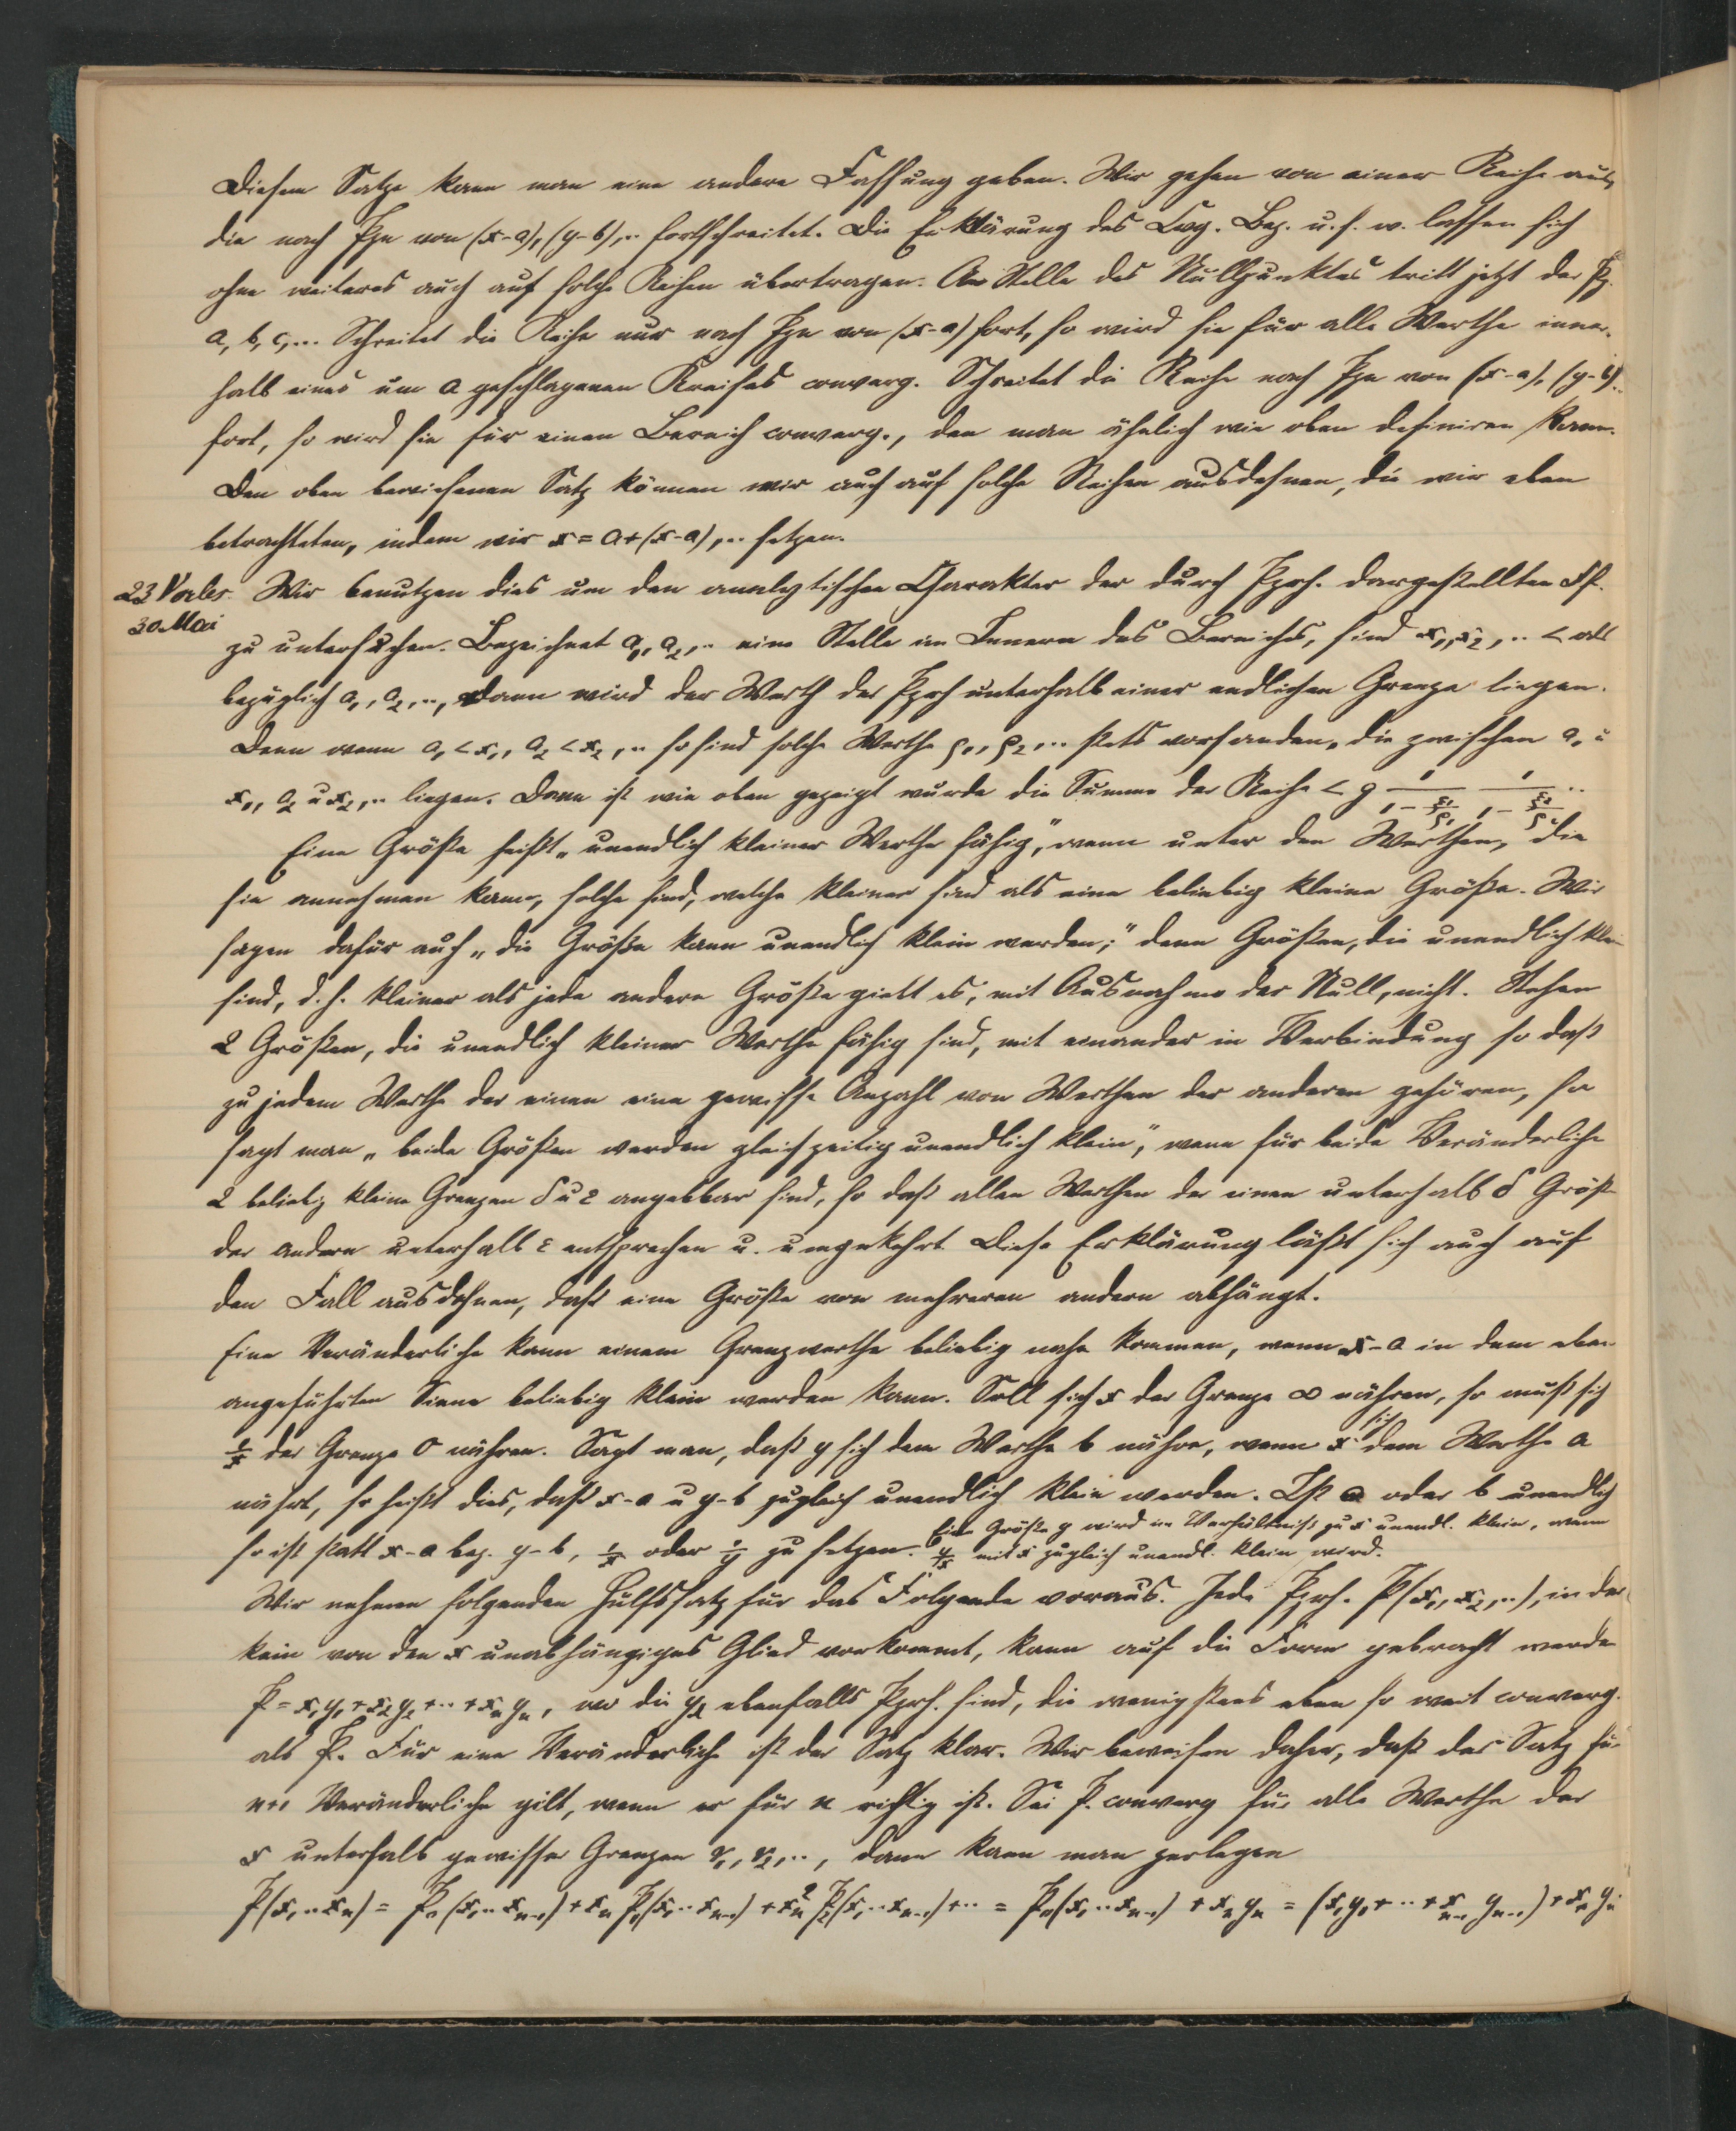 Diesem Satze kann man eine andere Fassung geben. Wir gehen von einer Reihe aus,
die nach Ppn von (x-a), (y-b),.. fortschreitet. Die Erklärung des Cvg. Bez. u.s.w. lassen sich
ohne weiteres auch auf solche Reihen übertragen. An Stelle des Nullpunktes tritt jetzt der Pp.
a, b, c,... Schreitet die Reihe nur nach Ppn von (x-a) fort, so wird sie für alle Werthe inner-
halb eines um a geschlagenen Kreises converg. Schreitet die Reihe nach Ppn von (x-a), (y-b)..
fort, so wird sie für einen Bereich converg., den man ähnlich wie oben definiren kann.
Den oben bewiesenen Satz können wir auch auf solche Reihen ausdehnen, die wir eben
betrachteten, indem wir x = a+(x-a),.. setzen.
23 Vorles. Wir benutzen dies um den analytischen Charakter der durch Pprh. dargestellten Ff.
30. Mai
zu untersuchen. Bezeichnet a₁, a₂,.. eine Stelle im Innern des Bereiches, sind x₁, x₂,.. < als
bezüglich a₁, a₂,.., dann wird der Werth der Pprh unterhalb einer endlichen Grenze liegen.
Denn wenn a₁ < x₁, a₂ < x₂,.. so sind solche Werthe ρ₁, ρ₂,... stets vorhanden, die zwischen a₁ u
x₁, a₂ u x₂,.. liegen. Dann ist wie oben gezeigt wurde die Summe der Reihe < g 1/(1-ξ₁/ρ₁) 1/(1-ξ₂/ρ₂) ..
Eine Größe heißt „unendlich kleiner Werthe fähig", wenn unter den Werthen, die
sie annehmen kann, solche sind, welche kleiner sind als eine beliebig kleine Größe. Wir
sagen dafür auch „die Größe kann unendlich klein werden;" denn Größen, die unendlich klein
sind, d.h. kleiner als jede andere Größe giebt es, mit Ausnahme der Null, nicht. Stehen
2 Größen, die unendlich kleiner Werthe fähig sind, mit einander in Verbindung so daß
zu jedem Werthe der einen eine gewisse Anzahl von Werthen der anderen gehören, so
sagt man „beide Größen werden gleichzeitig unendlich klein", wenn für beide Veränderliche
2 beliebig kleine Grenzen δ u ε angebbar sind, so daß allen Werthen der einen unterhalb δ Größ
der andern unterhalb ε entsprechen u. umgekehrt. Diese Erklärung läßt sich auch auf
den Fall ausdehnen, daß eine Größe von mehreren andern abhängt.
Eine Veränderliche kann einem Grenzwerthe beliebig nahe kommen, wenn x-a in dem eben
angeführten Sinne beliebig klein werden kann. Soll sich x der Grenze ∞ nähren, so muß sich
1/x der Grenze 0 nähren. Sagt man, daß y sich dem Werthe b nähre, wenn x sich dem Werthe a
nährt, so heißt dies, daß x-a u y-b zugleich unendlich klein werden. Ist a oder b unendlich
so ist statt x-a bez. y-b, 1/x oder 1/y zu setzen. Eine Größe y wird im Verhältniß zu x unendl. klein, wenn
y/x mit x zugleich unendl. klein wird.
Wir nehmen folgenden Hülfssatz für das Folgende voraus. Jede Pprh. P(x₁, x₂,..), in der
kein von den x unabhängiges Glied vorkommt, kann auf die Form gebracht werde
P = x₁y₁+x₂y₂+..+xₙyₙ, wo die yλ ebenfalls Pprh. sind, die wenigstens eben so weit converg.
als P. Für eine Veränderliche ist der Satz klar. Wir beweisen daher, daß der Satz für
n+1 Veränderliche gilt, wenn er für n richtig ist. Sei P. converg für alle Werthe der
x unterhalb gewisser Grenzen r₁, r₂,.., dann kann man zerlegen
P(x₁..xₙ) = P₀(x₁..xₙ₋₁) + xₙP₁(x₁..xₙ₋₁) + xₙ²P₂(x₁..xₙ₋₁)+.. = P₀(x₁..xₙ₋₁) + xₙyₙ = (x₁y₁+..+xₙ₋₁yₙ₋₁) + xₙyₙ